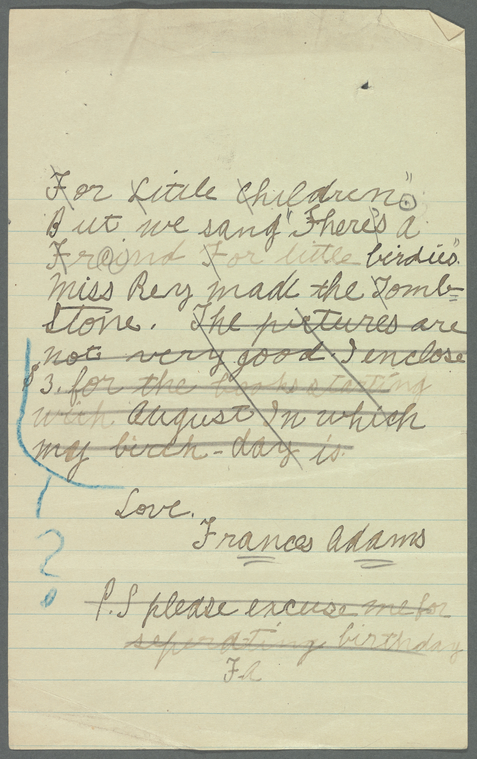 For Little Children".
But we sang "There's a
Freind For little birdies".
Miss Rey made the Tomb=
Stone. The pictures are
not very good. I enclose
$3. for the books starting
with August In which
my birth-day is.
Love.
Frances Adams
P.S please excuse me for
seperating birthday
FA
1
?